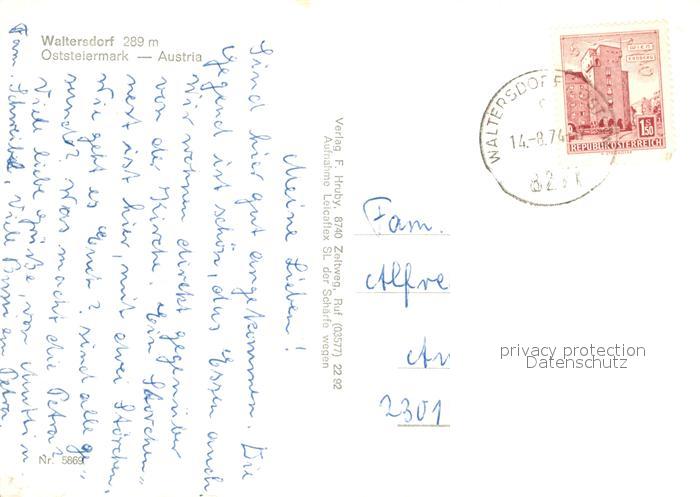 Waltersdorf 289 m
Oststeiermark — Austria
Meine Lieben!
Sind hier gut angekommen. Die
Gegend ist schön, das Essen auch.
Wir wohnen direkt gegenüber
von der Kirche. Ein Storchen"
nest ist hier, mit drei Störchen.
Wie geht es Euch? sind alle ge"
sund? Was macht die Petra?
Viele liebe Grüße, von Mutti u.
Fam. Viele Bussi an Petra.
Nr. 5869
Verlag F. Hruby, 8740 Zeltweg, Ruf (03577) 22 92
Aufnahme Leicaflex SL der Schärfe wegen
WIEN
ERDBERG
1S50
REPUBLIK ÖSTERREICH
WALTERSDORF
14.-8.74
Fam.
Alfre
An
2301
privacy protection
Datenschutz